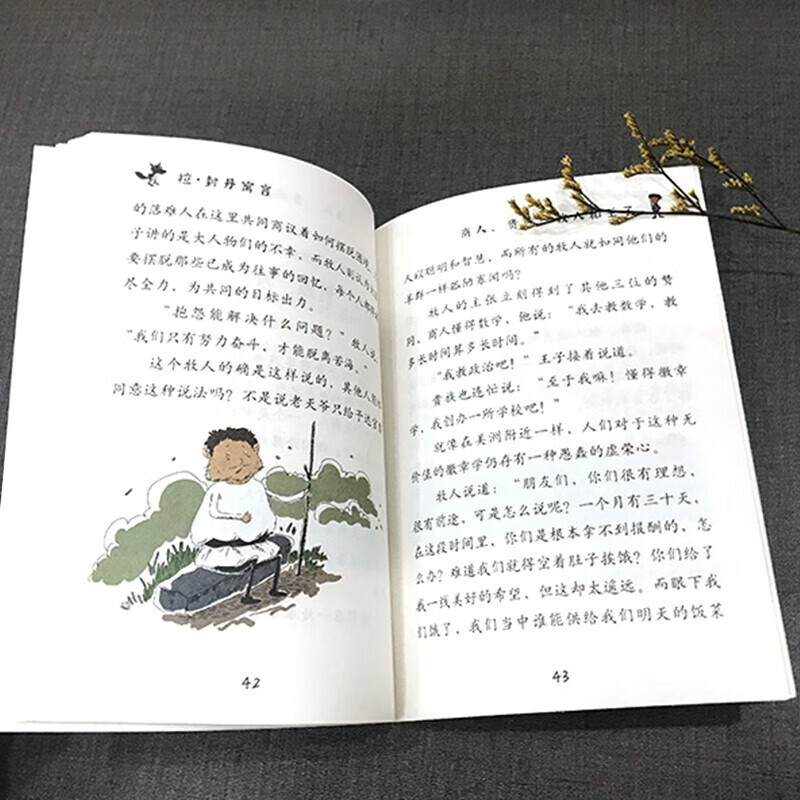 拉·封丹寓言
的落难人在这里共同商议着如何摆脱困境,
子讲的是大人物们的不幸,而牧人则认为
要摆脱那些已成为往事的回忆,每个人都
尽全力,为共同的目标出力。
"抱怨能解决什么问题?"牧人说,
"我们只有努力奋斗,才能脱离苦海。"
这个牧人的确是这样说的,其他人
同意这种说法吗?不是说老天爷只给予达官
42
商人、贵
人和王子
人以聪明和智慧,而所有的牧人就如同他们的
羊群一样孤陋寡闻吗?
牧人的主张立刻得到了其他三位的赞
同,商人懂得数学,他说:"我去教数学,教
多长时间算多长时间。"
"我教政治吧!"王子接着说道。
贵族也连忙说:"至于我嘛!懂得徽章
学,我创办一所学校吧!"
就像在美洲附近一样,人们对于这种无
价值的徽章学仍存有一种愚蠢的虚荣心。
牧人说道:"朋友们,你们很有理想,
很有前途,可是怎么说呢?一个月有三十天,
在这段时间里,你们是根本拿不到报酬的,怎
么办?难道我们就得空着肚子挨饿?你们给了
我一线美好的希望,但这却太遥远。而眼下我
们饿了,我们当中谁能供给我们明天的饭菜
43